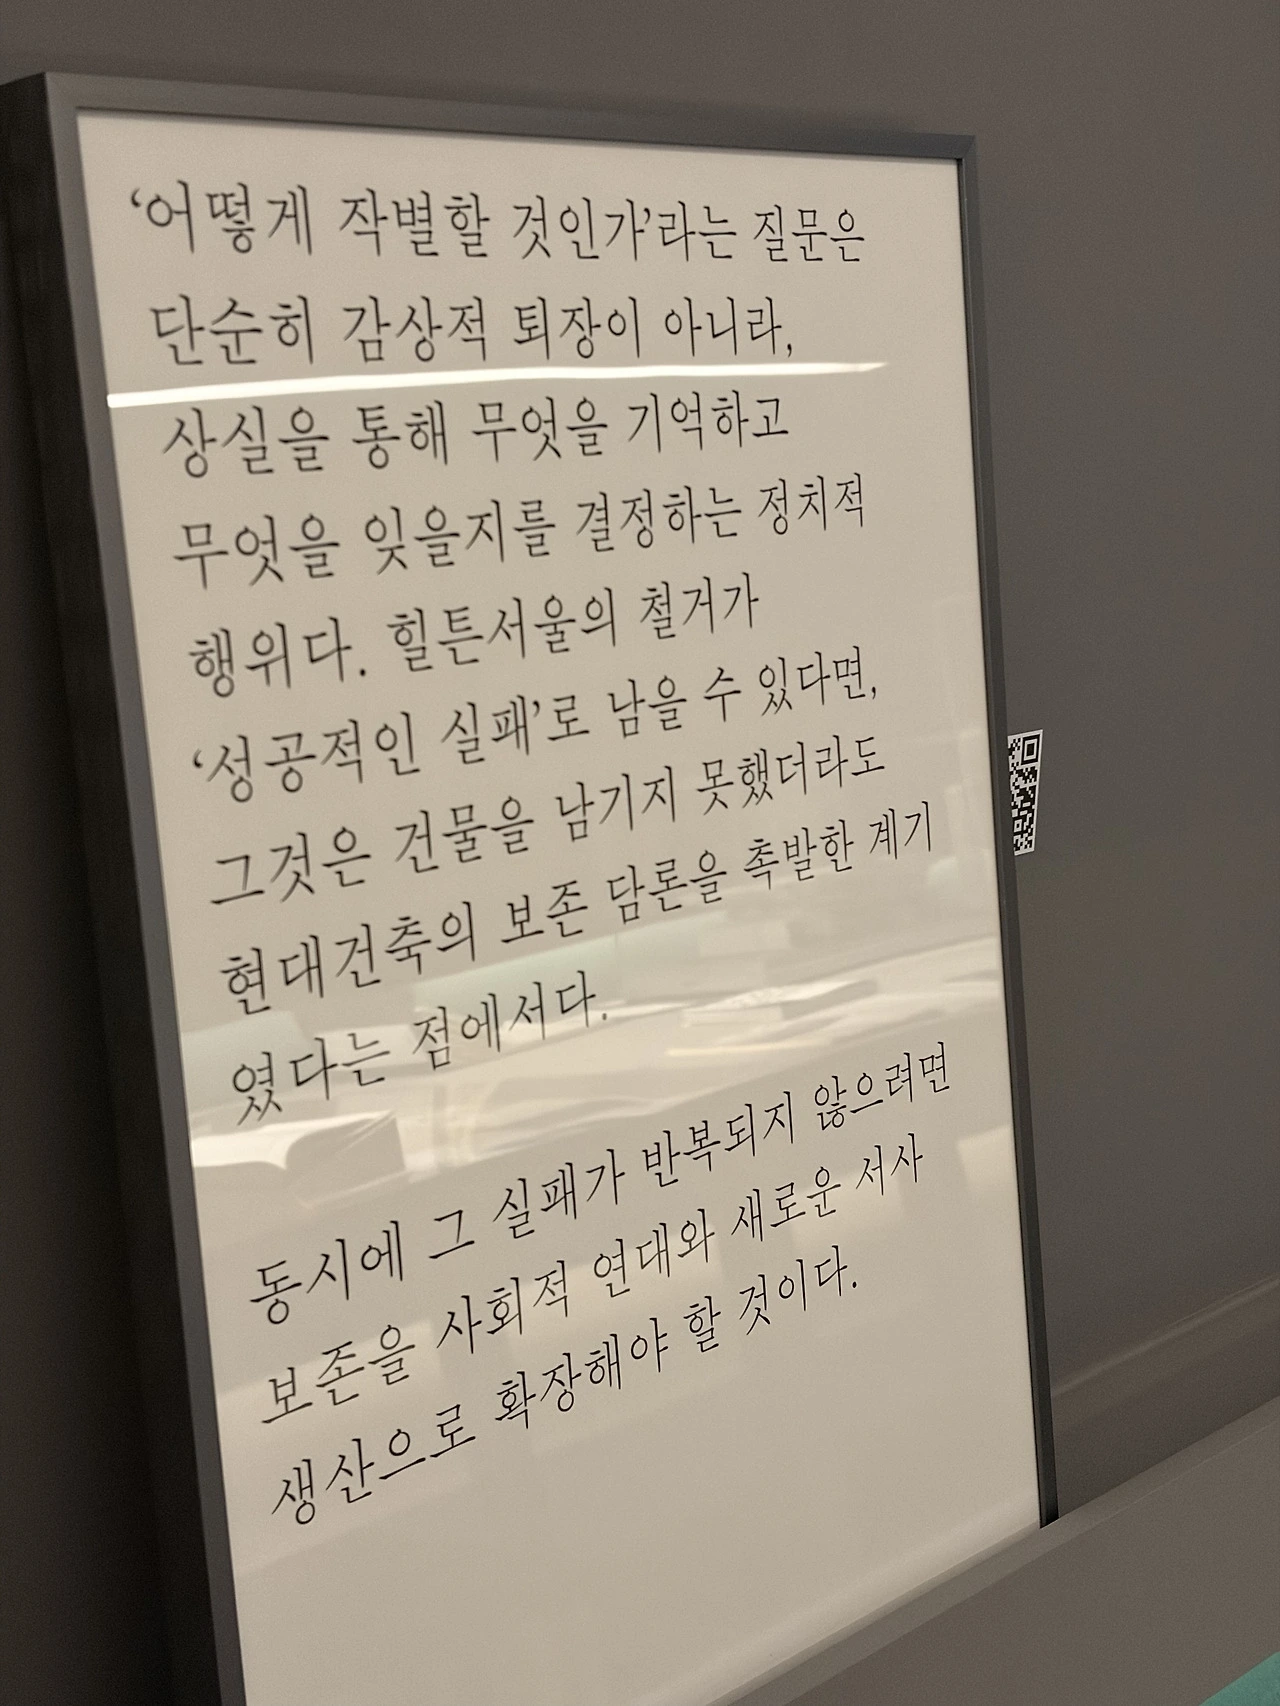 ‘어떻게 작별할 것인가’라는 질문은
단순히 감상적 퇴장이 아니라,
상실을 통해 무엇을 기억하고
무엇을 잊을지를 결정하는 정치적
행위다. 힐튼서울의 철거가
‘성공적인 실패’로 남을 수 있다면,
그것은 건물을 남기지 못했더라도
현대건축의 보존 담론을 촉발한 계기
였다는 점에서다.
동시에 그 실패가 반복되지 않으려면
보존을 사회적 연대와 새로운 서사
생산으로 확장해야 할 것이다.